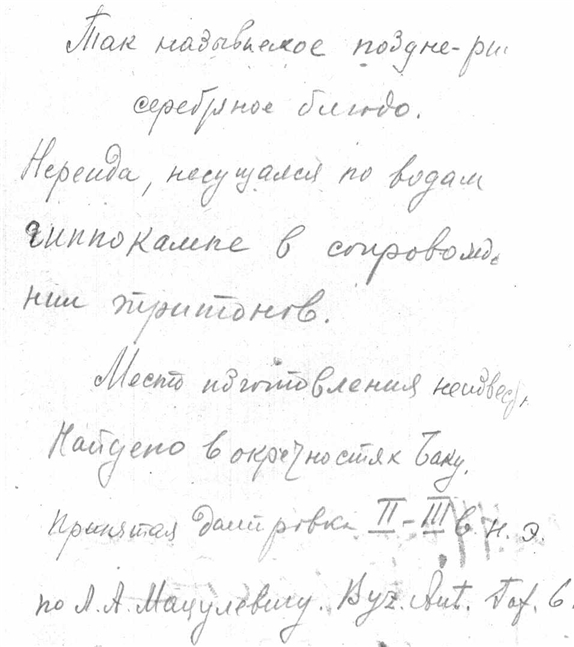 Так называемое поздне-ри
серебряное блюдо.
Нереида, несущаяся по водам
гиппокампе в сопровожде
нии тритонов.
Место изготовления неизвестн
Найдено в окрестностях Баку.
Принятая датировка II-III в н. э.
по Л. А. Мацулевичу. Byz. Ant. Taf. 6.